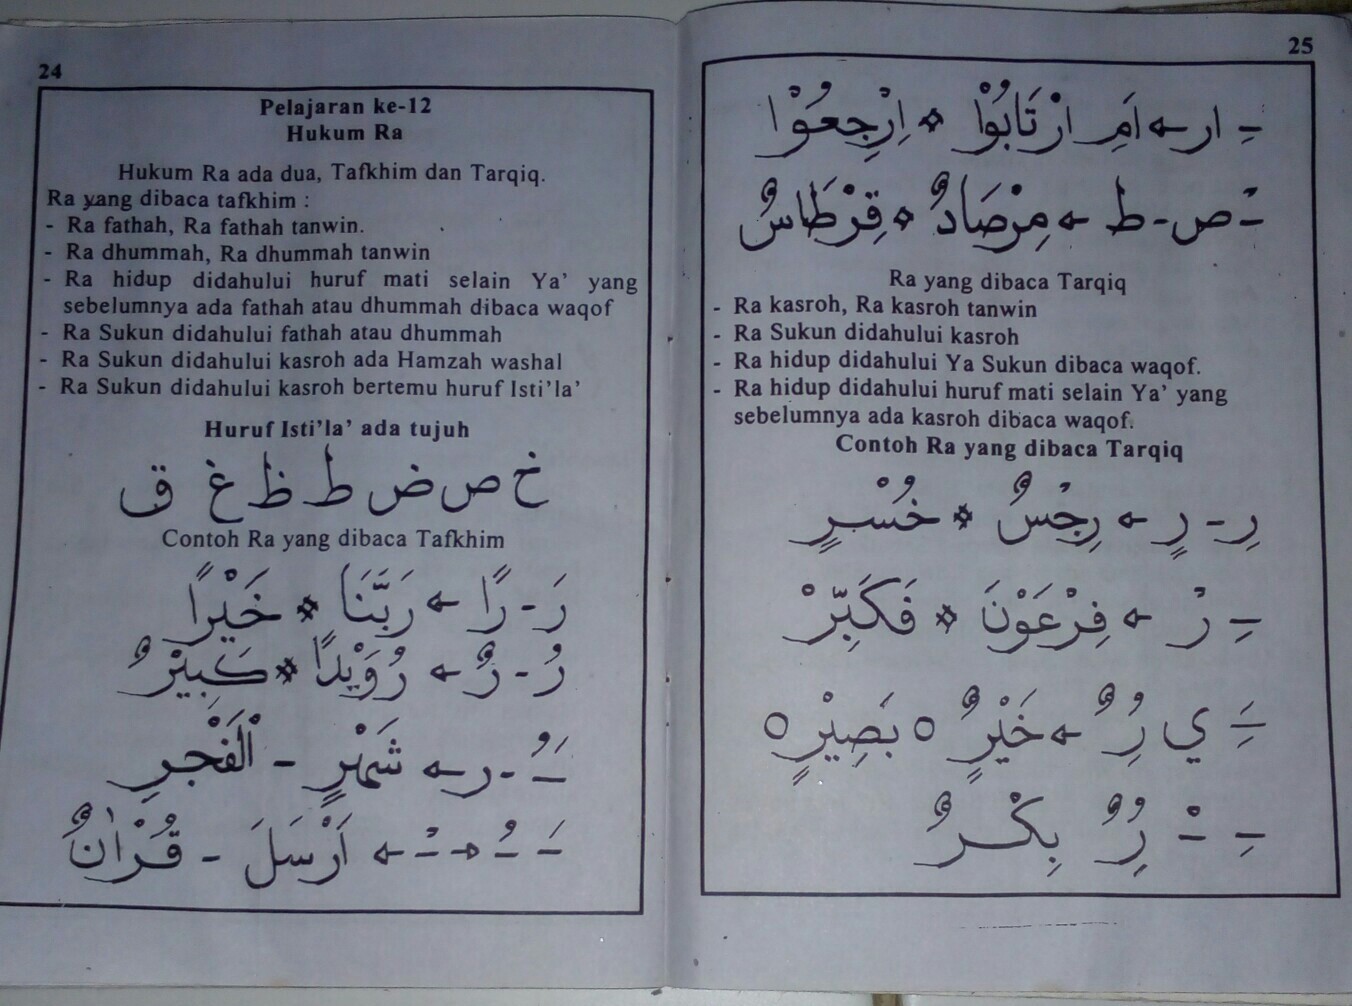 24
Pelajaran ke-12
Hukum Ra
Hukum Ra ada dua, Tafkhim dan Tarqiq.
Ra yang dibaca tafkhim :
- Ra fathah, Ra fathah tanwin.
- Ra dhummah, Ra dhummah tanwin
- Ra hidup didahului huruf mati selain Ya' yang
sebelumnya ada fathah atau dhummah dibaca waqof
- Ra Sukun didahului fathah atau dhummah
- Ra Sukun didahului kasroh ada Hamzah washal
- Ra Sukun didahului kasroh bertemu huruf Isti'la'
Huruf Isti'la' ada tujuh
خ ص ض ط ظ غ ق
Contoh Ra yang dibaca Tafkhim
رَ - رًا ← رَبَّنَا * خَيْرًا
رُ - رٌ ← رُوَيْدًا * كَبِيْرٌ
ـَ ـُ - ر ← شَهْرٍ - الْفَجْرِ
ـَ ـُ ـْ ← اَرْسَلَ - قُرْاٰنٌ
25
ـِ ار ← اَمِ ارْتَابُوْا * اِرْجِعُوْا
ـْ ص - ط ← مِرْصَادٌ * قِرْطَاسٌ
Ra yang dibaca Tarqiq
- Ra kasroh, Ra kasroh tanwin
- Ra Sukun didahului kasroh
- Ra hidup didahului Ya Sukun dibaca waqof.
- Ra hidup didahului huruf mati selain Ya' yang
sebelumnya ada kasroh dibaca waqof.
Contoh Ra yang dibaca Tarqiq
رِ - رٍ ← رِجْسٌ * خُسْرٍ
ـِ رْ ← فِرْعَوْنَ * فَكَبِّرْ
ي رٌ ← خَيْرٌ ○ بَصِيْرٍ ○
ـِ ـْ رٌ بِكْرٌ